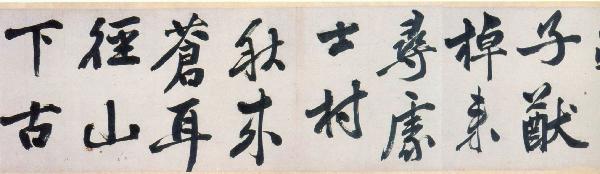 子猷
棹来
尋處
士村
秋
蒼耳
徑山
下古